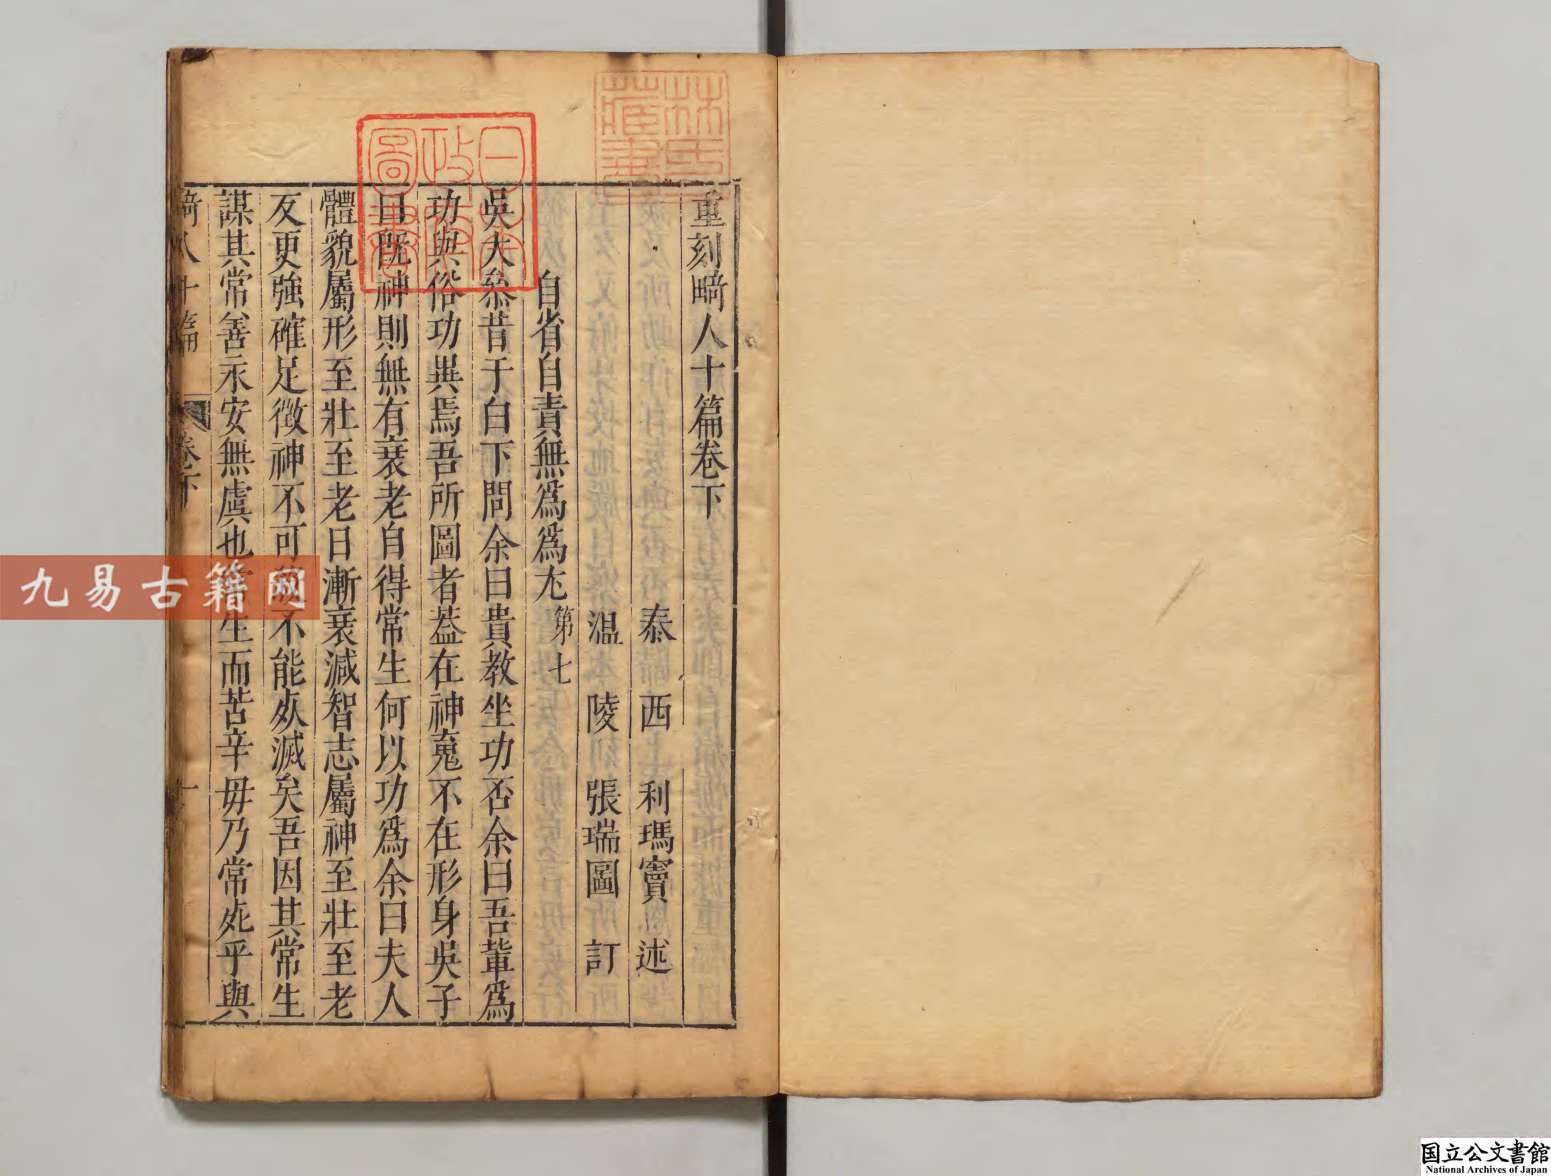 重刻畸人十篇卷下
泰西利瑪竇述
溫陵張瑞圖訂
自省自責無為為尤第七
吳大叅昔于白下問余曰貴教坐功否余曰吾輩為
功與俗功異焉吾所圖者葢在神䰟不在形身吳子
曰既神則無有衰老自得常生何以功為余曰夫人
體貌屬形至壯至老日漸衰減智志屬神至壯至老
反更強確足徵神不可 不能歿滅矣吾因其常生
謀其常善永安無虞也 生而苦辛毋乃常死乎與
畸人十篇
卷下
一
林氏藏書
日本政府圖書
九易古籍网
国立公文書館
National Archives of Japan